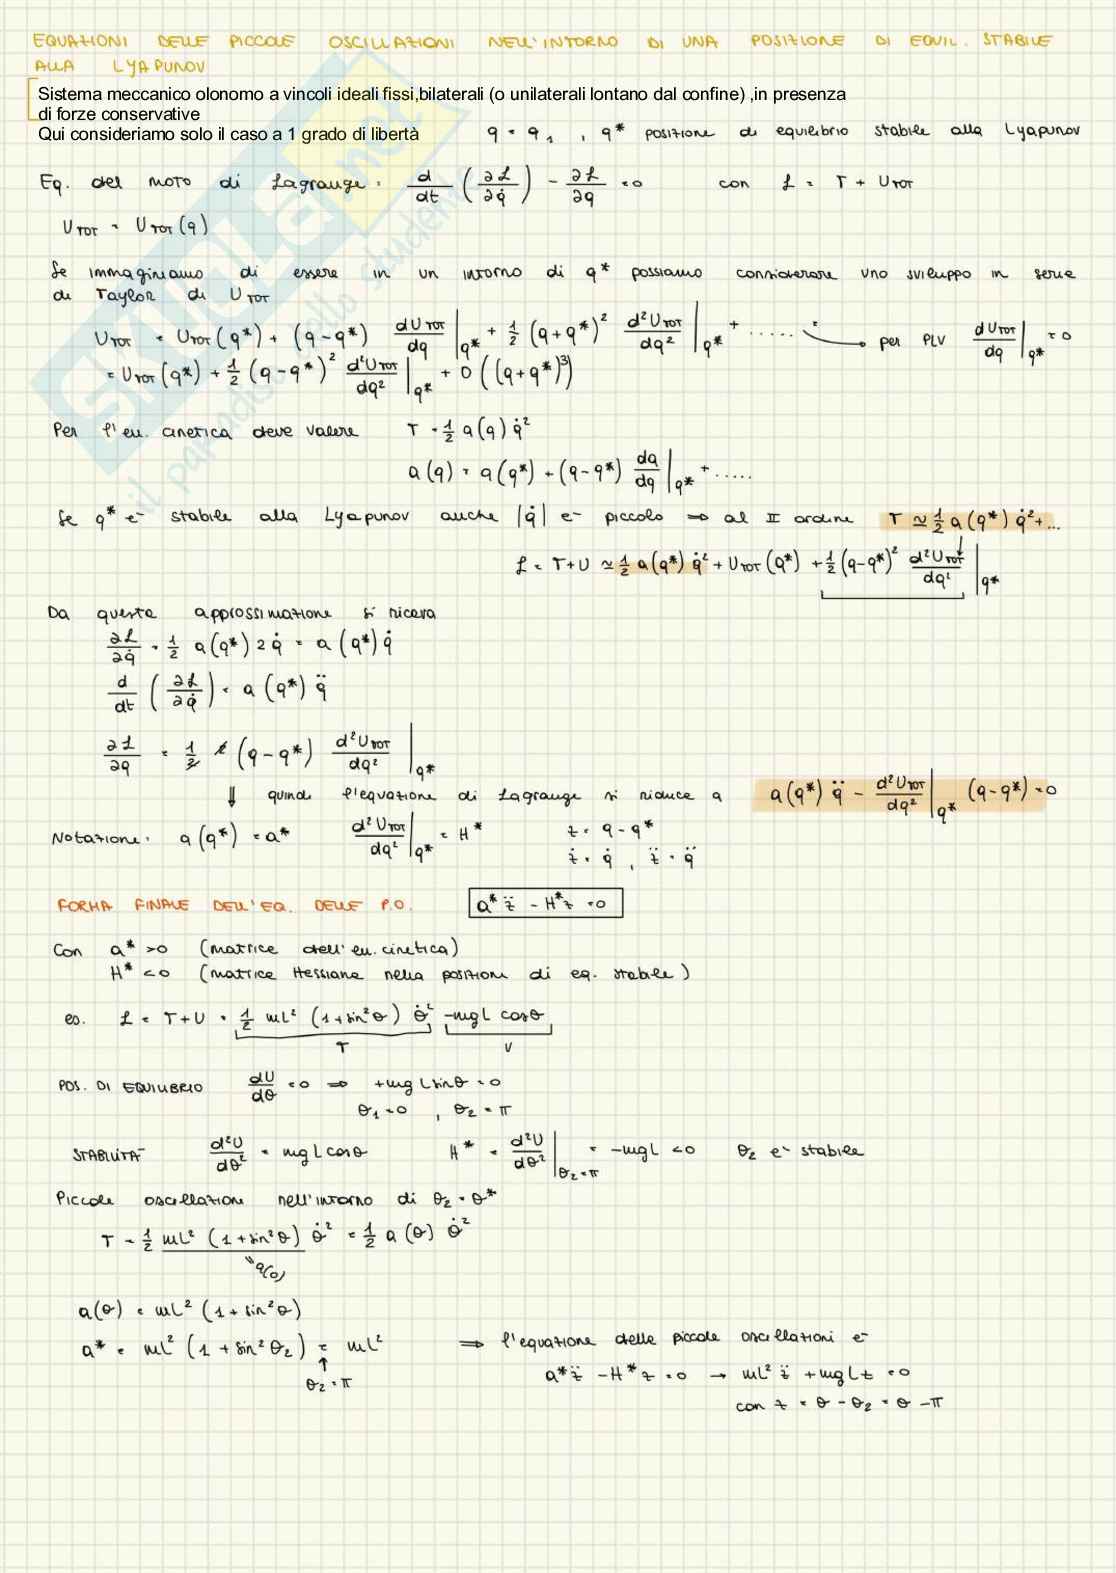 EQUAZIONI DELLE PICCOLE OSCILLAZIONI NELL'INTORNO DI UNA POSIZIONE DI EQUIL. STABILE
ALLA LYAPUNOV
Sistema meccanico olonomo a vincoli ideali fissi,bilaterali (o unilaterali lontano dal confine) ,in presenza
di forze conservative
Qui consideriamo solo il caso a 1 grado di libertà q = q₁ , q* posizione di equilibrio stabile alla Lyapunov
Eq. del moto di Lagrange: d/dt (∂L/∂q̇) - ∂L/∂q = 0 con L = T + U_TOT
U_TOT = U_TOT(q)
Se immaginiamo di essere in un intorno di q* possiamo considerare uno sviluppo in serie
di Taylor di U_TOT
U_TOT = U_TOT(q*) + (q-q*) dU_TOT/dq |q* + 1/2 (q+q*)² d²U_TOT/dq² |q* + ..... = per PLV dU_TOT/dq |q* = 0
= U_TOT(q*) + 1/2 (q-q*)² d²U_TOT/dq² |q* + O((q+q*)³)
Per l'en. cinetica deve valere T = 1/2 a(q) q̇²
a(q) = a(q*) + (q-q*) da/dq |q* + .....
Se q* è stabile alla Lyapunov anche |q̇| è piccolo ⇒ al II ordine T ≃ 1/2 a(q*) q̇² + ...
L = T+U ≃ 1/2 a(q*) q̇² + U_TOT(q*) + 1/2 (q-q*)² d²U_TOT/dq² |q*
Da questa approssimazione si ricava
∂L/∂q̇ = 1/2 a(q*) 2 q̇ = a(q*) q̇
d/dt (∂L/∂q̇) = a(q*) q̈
∂L/∂q = 1/2 2 (q-q*) d²U_TOT/dq² |q*
⇓ quindi l'equazione di Lagrange si riduce a a(q*) q̈ - d²U_TOT/dq² |q* (q-q*) = 0
Notazione: a(q*) = a* d²U_TOT/dq² |q* = H* z = q - q*
ż = q̇ , z̈ = q̈
FORMA FINALE DELL'EQ. DELLE P.O. a* z̈ - H* z = 0
Con a* > 0 (matrice dell'en. cinetica)
H* < 0 (matrice Hessiana nella posizione di eq. stabile)
es. L = T+U = 1/2 mL² (1+sin²θ) θ̇² -mgL cosθ
T U
POS. DI EQUILIBRIO dU/dθ = 0 ⇒ +mgLsinθ = 0
θ₁ = 0 , θ₂ = π
STABILITÀ d²U/dθ² = mgLcosθ H* = d²U/dθ² |θ₂=π = -mgL < 0 θ₂ è stabile
Piccole oscillazioni nell'intorno di θ₂ = θ*
T = 1/2 mL² (1+sin²θ) θ̇² = 1/2 a(θ) θ̇²
a(θ)
a(θ) = mL² (1+sin²θ)
a* = mL² (1+sin²θ₂) = mL² ⇒ l'equazione delle piccole oscillazioni è
↑
θ₂ = π
a* z̈ - H* z = 0 → mL² z̈ + mgLz = 0
con z = θ - θ₂ = θ - π